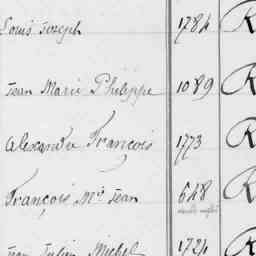 Louis Joseph 1784 R
Jean Marie Philippe 1089 R
Alexandre François 1773 R
François Mie Jean 648 R
Jean Julien Michel 1724 R